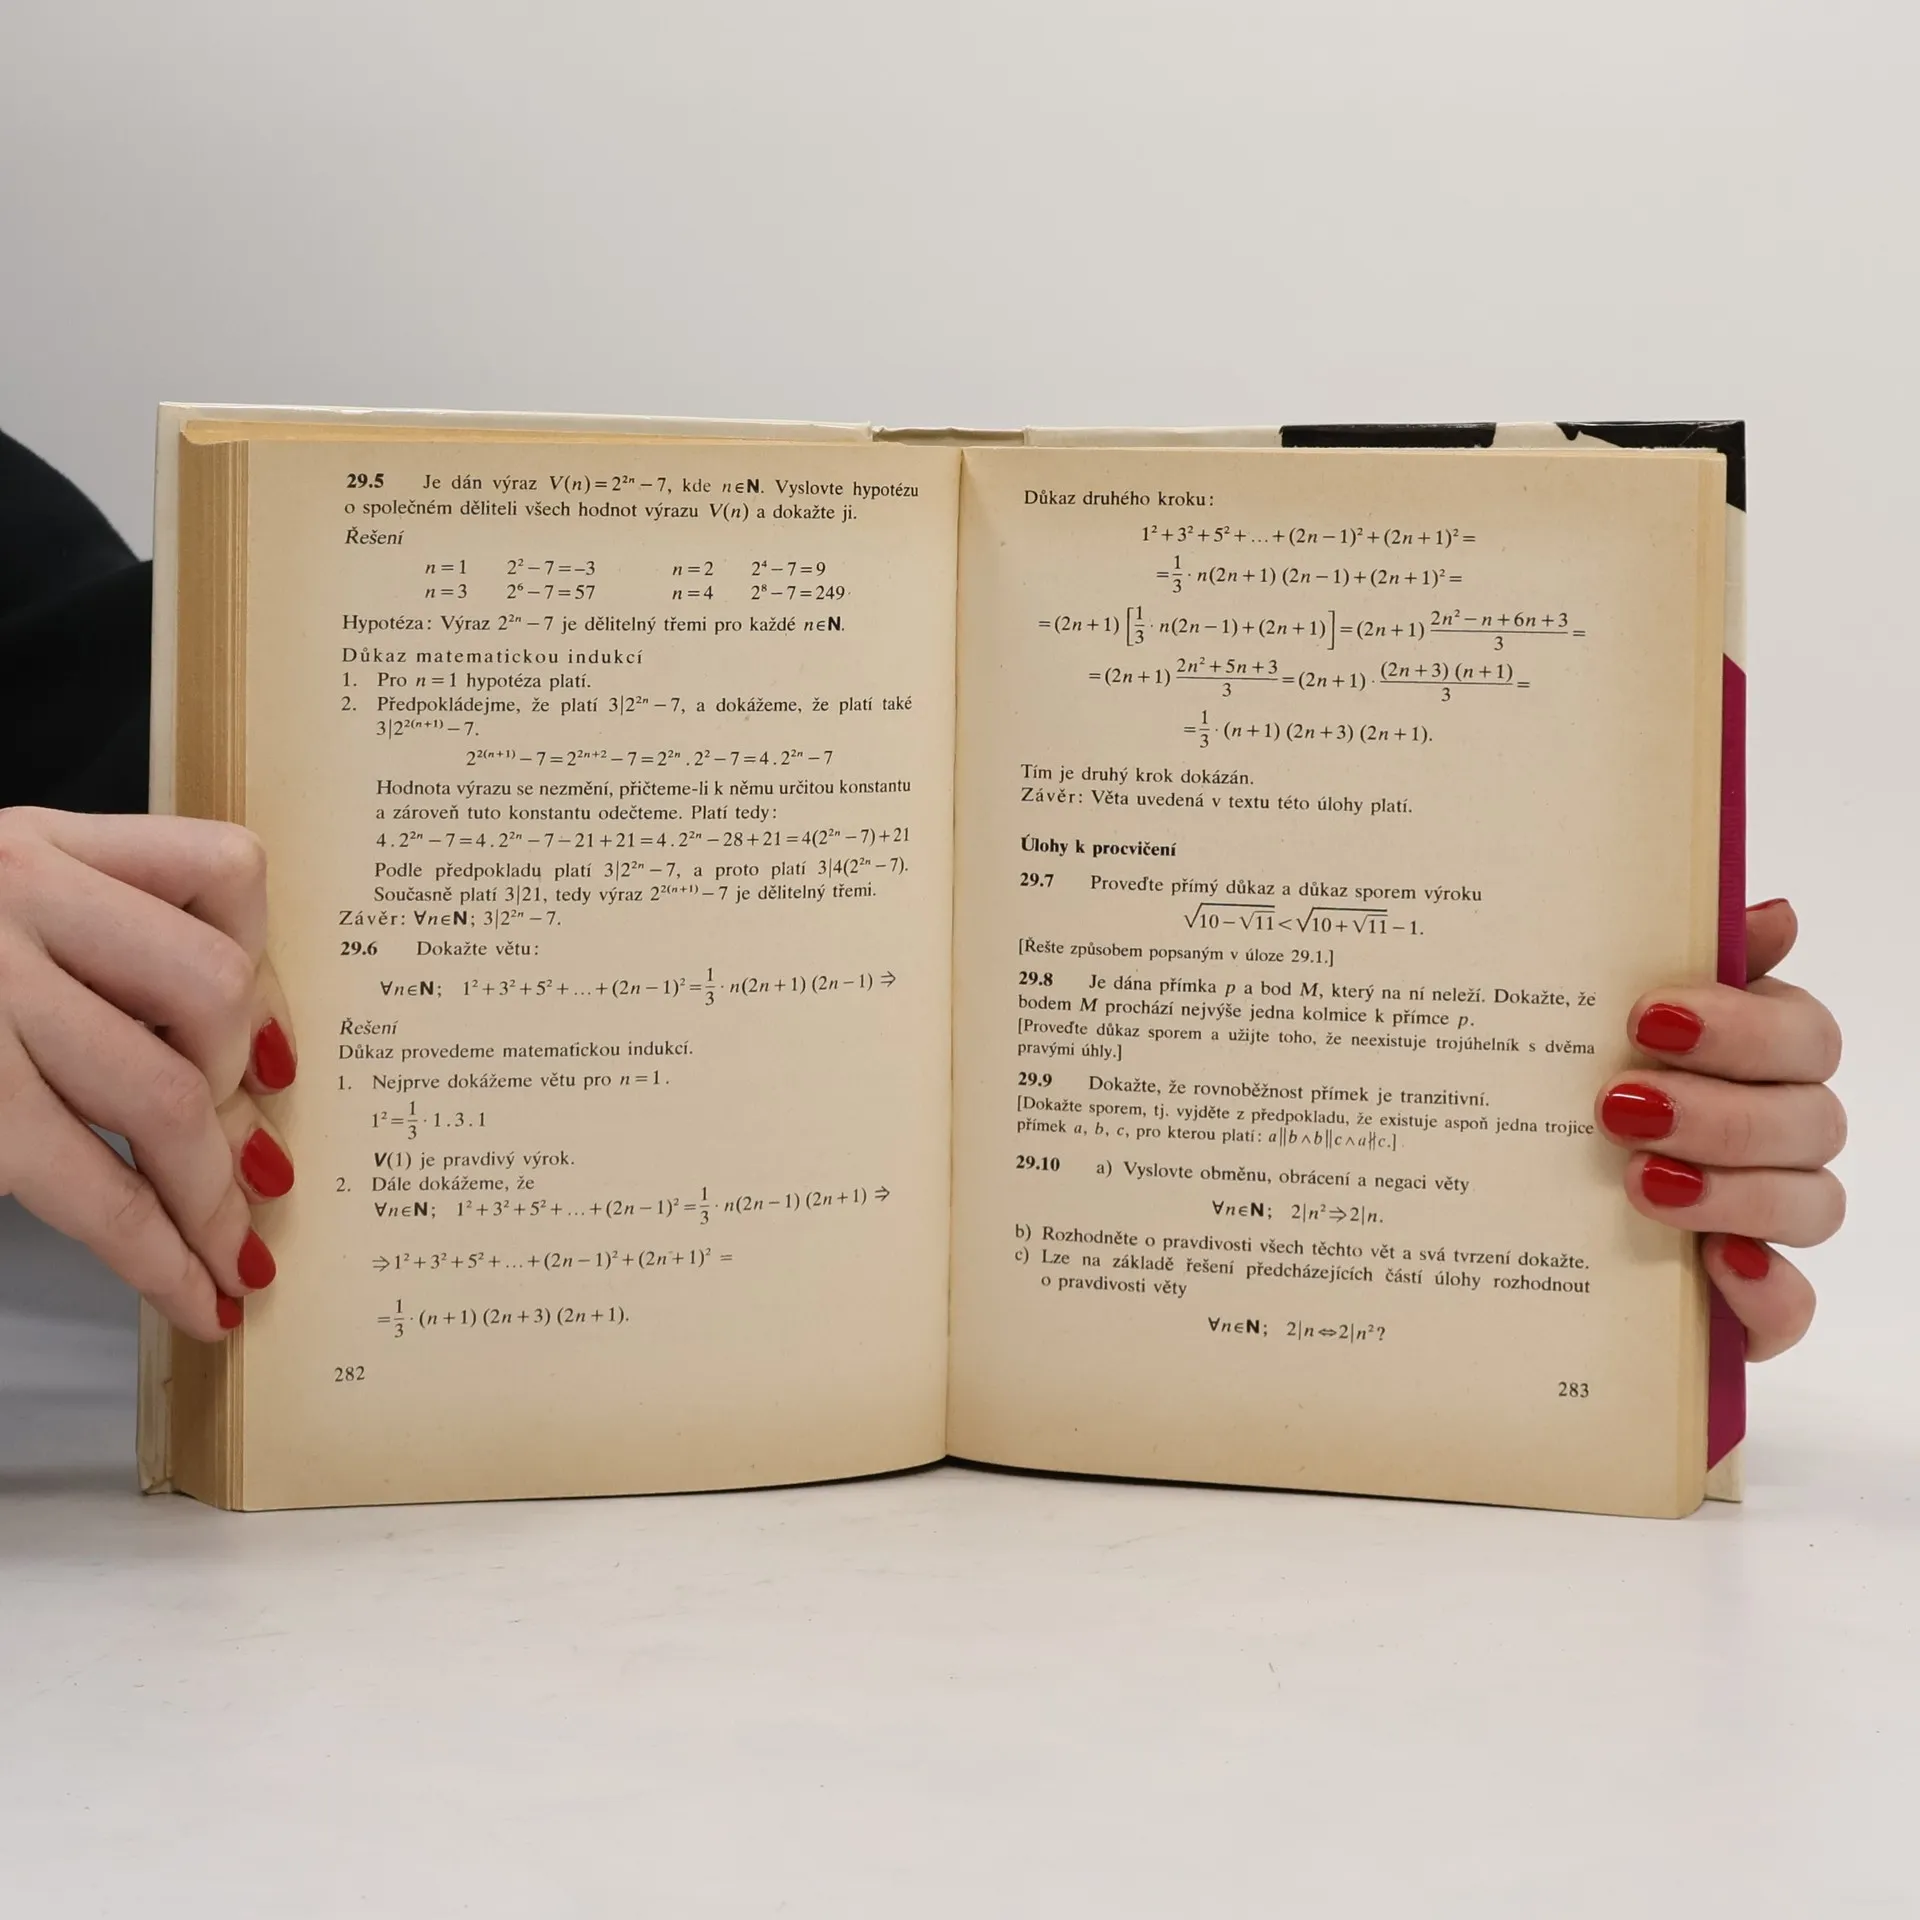 29.5 Je dán výraz V(n)=2²ⁿ−7, kde n∈N. Vyslovte hypotézu
o společném děliteli všech hodnot výrazu V(n) a dokažte ji.
Řešení
n=1 2²−7=−3 n=2 2⁴−7=9
n=3 2⁶−7=57 n=4 2⁸−7=249
Hypotéza: Výraz 2²ⁿ−7 je dělitelný třemi pro každé n∈N.
Důkaz matematickou indukcí
1. Pro n=1 hypotéza platí.
2. Předpokládejme, že platí 3|2²ⁿ−7, a dokážeme, že platí také
3|2²⁽ⁿ⁺¹⁾−7.
2²⁽ⁿ⁺¹⁾−7=2²ⁿ⁺²−7=2²ⁿ.2²−7=4.2²ⁿ−7
Hodnota výrazu se nezmění, přičteme-li k němu určitou konstantu
a zároveň tuto konstantu odečteme. Platí tedy:
4.2²ⁿ−7=4.2²ⁿ−7−21+21=4.2²ⁿ−28+21=4(2²ⁿ−7)+21
Podle předpokladu platí 3|2²ⁿ−7, a proto platí 3|4(2²ⁿ−7).
Současně platí 3|21, tedy výraz 2²⁽ⁿ⁺¹⁾−7 je dělitelný třemi.
Závěr: ∀n∈N; 3|2²ⁿ−7.
29.6 Dokažte větu:
∀n∈N; 1²+3²+5²+...+(2n−1)²=1/3·n(2n+1)(2n−1)⇒
Řešení
Důkaz provedeme matematickou indukcí.
1. Nejprve dokážeme větu pro n=1.
1²=1/3·1.3.1
V(1) je pravdivý výrok.
2. Dále dokážeme, že
∀n∈N; 1²+3²+5²+...+(2n−1)²=1/3·n(2n−1)(2n+1)⇒
⇒1²+3²+5²+...+(2n−1)²+(2n+1)²=
=1/3·(n+1)(2n+3)(2n+1).
282
Důkaz druhého kroku:
1²+3²+5²+...+(2n−1)²+(2n+1)²=
=1/3·n(2n+1)(2n−1)+(2n+1)²=
=(2n+1)[1/3·n(2n−1)+(2n+1)]=(2n+1)(2n²−n+6n+3)/3=
=(2n+1)(2n²+5n+3)/3=(2n+1)·(2n+3)(n+1)/3=
=1/3·(n+1)(2n+3)(2n+1).
Tím je druhý krok dokázán.
Závěr: Věta uvedená v textu této úlohy platí.
Úlohy k procvičení
29.7 Proveďte přímý důkaz a důkaz sporem výroku
√(10−√11)<√(10+√11)−1.
[Řešte způsobem popsaným v úloze 29.1.]
29.8 Je dána přímka p a bod M, který na ní neleží. Dokažte, že
bodem M prochází nejvýše jedna kolmice k přímce p.
[Proveďte důkaz sporem a užijte toho, že neexistuje trojúhelník s dvěma
pravými úhly.]
29.9 Dokažte, že rovnoběžnost přímek je tranzitivní.
[Dokažte sporem, tj. vyjděte z předpokladu, že existuje aspoň jedna trojice
přímek a, b, c, pro kterou platí: a∥b∧b∥c∧a∦c.]
29.10 a) Vyslovte obměnu, obrácení a negaci věty
∀n∈N; 2|n²⇒2|n.
b) Rozhodněte o pravdivosti všech těchto vět a svá tvrzení dokažte.
c) Lze na základě řešení předcházejících částí úlohy rozhodnout
o pravdivosti věty
∀n∈N; 2|n⇔2|n²?
283